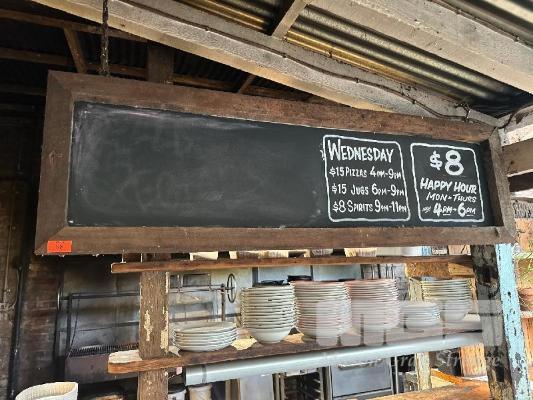 WEDNESDAY
$15 PIZZAS 4PM-9PM
$15 JUGS 6PM-9PM
$8 SPIRITS 9PM-11PM
$8
HAPPY HOUR
MON-THURS
4PM-6PM